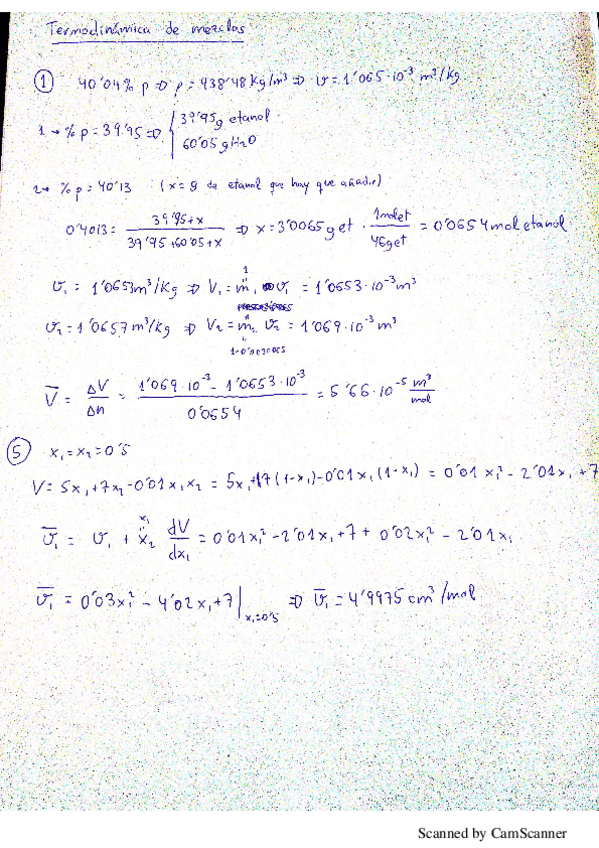 Termodinámica de mezclas
① 40'04% p ⇒ ρ = 938'48 kg/m³ ⇒ v = 1'065·10⁻³ m³/kg
1 → % p = 39'95 ⇒ { 39'95 g etanol
60'05 g H2O
2 → % p = 40'13 (x = g de etanol que hay que añadir)
0'4013 = (39'95 + x) / (39'95 + 60'05 + x) ⇒ x = 3'0065 g et · 1 mol et / 46 g et = 0'0654 mol etanol
v₁ = 1'0653 m³/kg ⇒ V₁ = m₁ v₁ = 1'0653·10⁻³ m³
1
v₂ = 1'0657 m³/kg ⇒ V₂ = m₂ v₂ = 1'069·10⁻³ m³
V̄ = ΔV/Δn = (1'069·10⁻³ - 1'0653·10⁻³) / 0'0654 = 5'66·10⁻⁵ m³/mol
⑤ x₁ = x₂ = 0'5
V = 5x₁ + 7x₂ - 0'01x₁x₂ = 5x₁ + 7(1-x₁) - 0'01x₁(1-x₁) = 0'01x₁² - 2'01x₁ + 7
x₁
v̄₁ = v₁ + x₂ dV/dx₁ = 0'01x₁² - 2'01x₁ + 7 + 0'02x₁² - 2'01x₁
v̄₁ = 0'03x₁² - 4'02x₁ + 7 | x₁=0'5 ⇒ v̄₁ = 4'9975 cm³/mol
Scanned by CamScanner